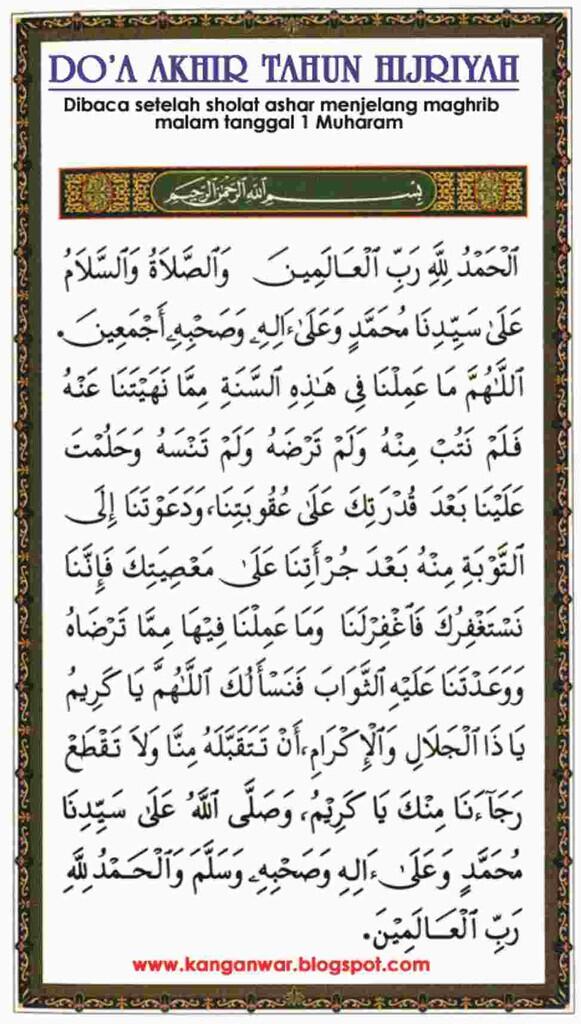 DO'A AKHIR TAHUN HIJRIYAH
Dibaca setelah sholat ashar menjelang maghrib
malam tanggal 1 Muharam
بِسْمِ اللهِ الرَّحْمٰنِ الرَّحِيْمِ
اَلْحَمْدُ لِلَّهِ رَبِّ الْعَالَمِينَ وَالصَّلَاةُ وَالسَّلَامُ
عَلَىٰ سَيِّدِنَا مُحَمَّدٍ وَعَلَىٰ ءَالِهِ وَصَحْبِهِ أَجْمَعِينَ.
اَللَّهُمَّ مَا عَمِلْنَا فِي هَٰذِهِ السَّنَةِ مِمَّا نَهَيْتَنَا عَنْهُ
فَلَمْ نَتُبْ مِنْهُ وَلَمْ تَرْضَهُ وَلَمْ تَنْسَهُ وَحَلُمْتَ
عَلَيْنَا بَعْدَ قُدْرَتِكَ عَلَىٰ عُقُوبَتِنَا، وَدَعَوْتَنَا إِلَى
التَّوْبَةِ مِنْهُ بَعْدَ جُرْأَتِنَا عَلَىٰ مَعْصِيَتِكَ فَإِنَّنَا
نَسْتَغْفِرُكَ فَاغْفِرْلَنَا وَمَا عَمِلْنَا فِيْهَا مِمَّا تَرْضَاهُ
وَوَعَدْتَنَا عَلَيْهِ الثَّوَابَ فَنَسْأَلُكَ اللَّهُمَّ يَا كَرِيْمُ
يَا ذَا الْجَلَالِ وَالْإِكْرَامِ، أَنْ تَتَقَبَّلَهُ مِنَّا وَلَا تَقْطَعْ
رَجَاءَنَا مِنْكَ يَا كَرِيْمُ، وَصَلَّى اللَّهُ عَلَىٰ سَيِّدِنَا
مُحَمَّدٍ وَعَلَىٰ ءَالِهِ وَصَحْبِهِ وَسَلَّمَ وَالْحَمْدُ لِلَّهِ
رَبِّ الْعَالَمِيْنَ.
www.kanganwar.blogspot.com